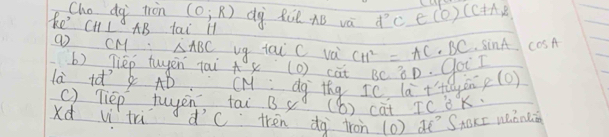 Cho đg tròn (O; R) đg kính AB và đ' C ∈ (O) (C≠A,B
kẻ CH⊥ AB tại H
a) CM: ΔABC vg tại C và CH² = AC.BC.sinA cosA
b) Tiếp tuyến tại A của (O) cắt BC ở D. Gọi I
là tđ' của AD CM: đg thg IC là t'tuyến của (O)
c) Tiếp tuyến tại B của (O) cắt IC ở K.
Xđ vị trí đ' C trên đg tròn (O) để S